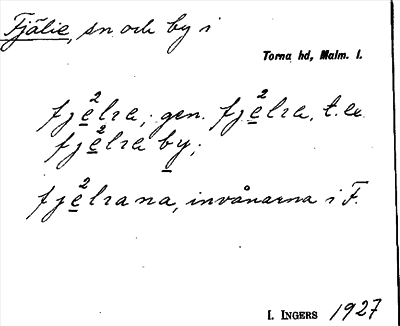 Fjälie, sn och by i
Torna hd, Malm. l.
fje²lra, gen. fje²lra, t.ex.
fje²lra by;
fje²lrana, invånarna i F.
I. INGERS 1927